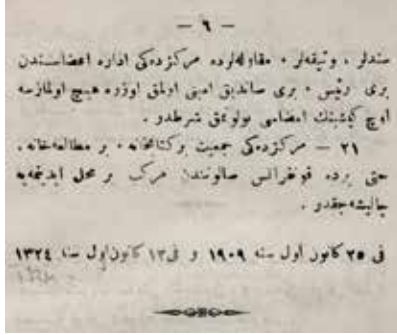 — ٦ —
سندلر ، وثیقه‌لر ، مقاوله‌لرده مرکزده‌کی اداره اعضاسندن
بری رئیس ، بری صاندیق امینی اولمق اوزره هیچ اولمازسه
اوچ کیشینك امضاسی بولونمق شرطدر .
٢١ — مرکزده‌کی جمعیت بر کتابخانه ، بر مطالعه‌خانه ،
حتی برده قونفرانس صالونندن مرکب بر محل ایدینمه‌یه
چالیشه‌جقدر .
فی ٢٥ کانون اول سنه ١٩٠٩ و فی ١٢ کانون اول سنه ١٣٢٤